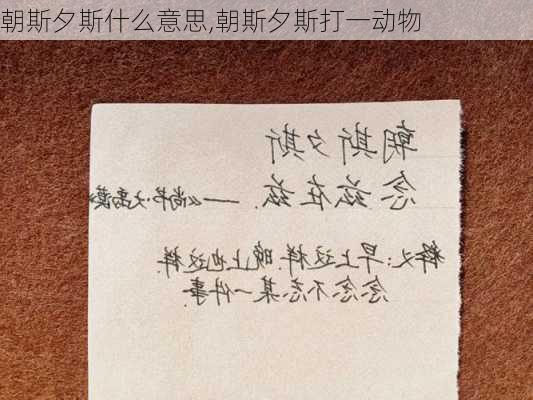 朝斯夕斯什么意思,朝斯夕斯打一动物
朝斯夕斯
念兹在兹.——《尚书·大禹谟》
释义:早上这样.晚上也这样.
念念不忘某一件事.